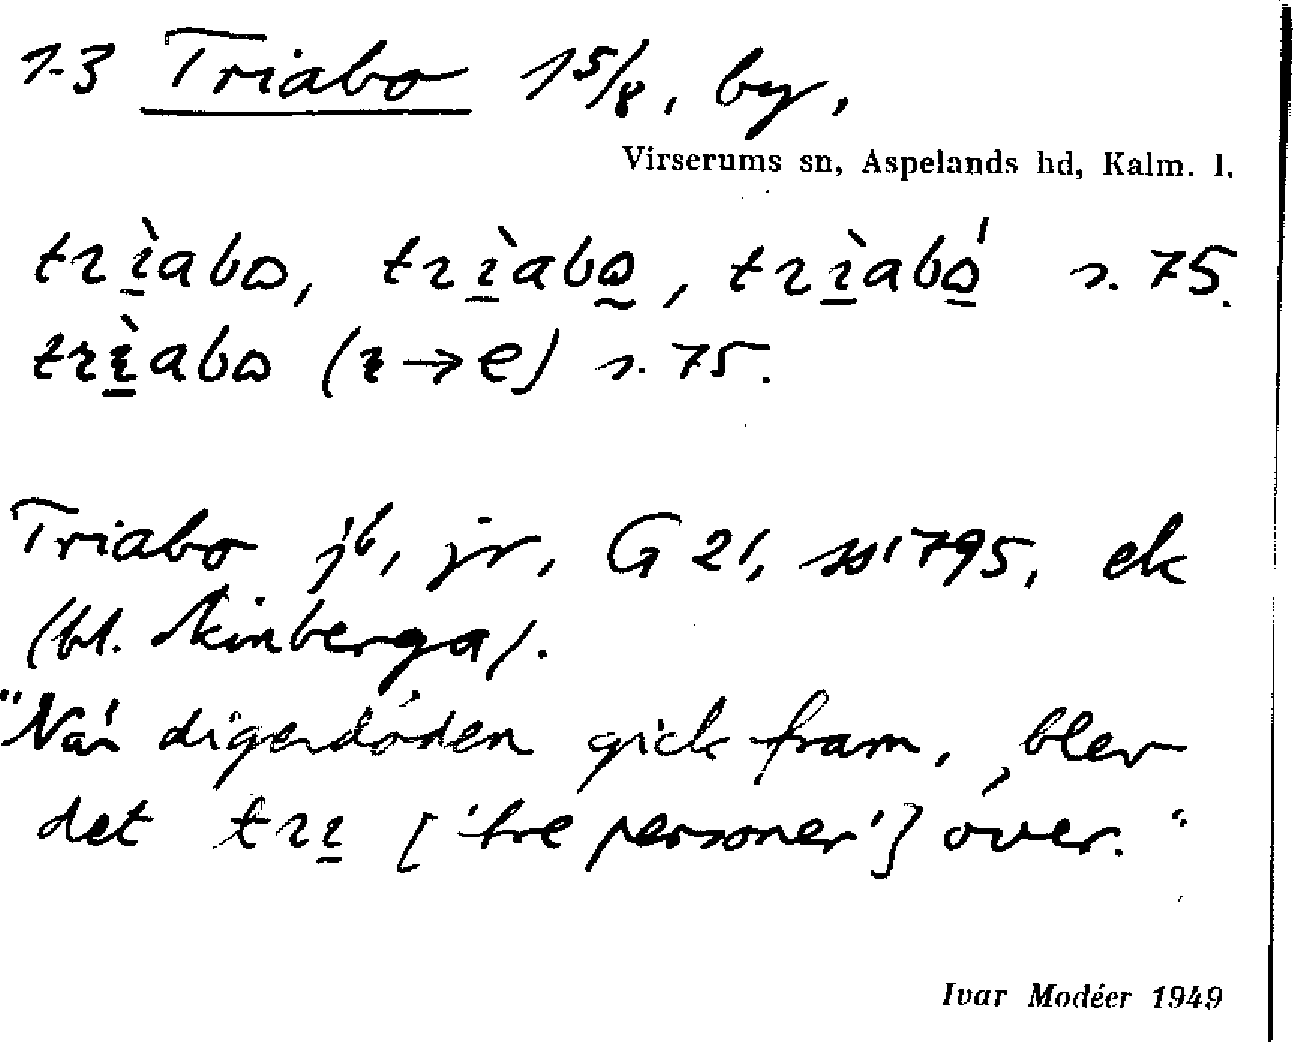 1-3 Triabo 1 5/8, by,
Virserums sn, Aspelands hd, Kalm. l.
trɩ̠̀abɷ, trɩ̠̀abɷ̰, trɩ̠̀abɷ̠́ s. 75.
trɩ̠̀abɷ (ɩ→e) s. 75.
Triabo jb, jr, G 21, so 1795, ek
(bl. Skinberga).
"När digerdöden gick fram, blev
det trɩ̠ ['tre personer'] över."
Ivar Modéer 1949